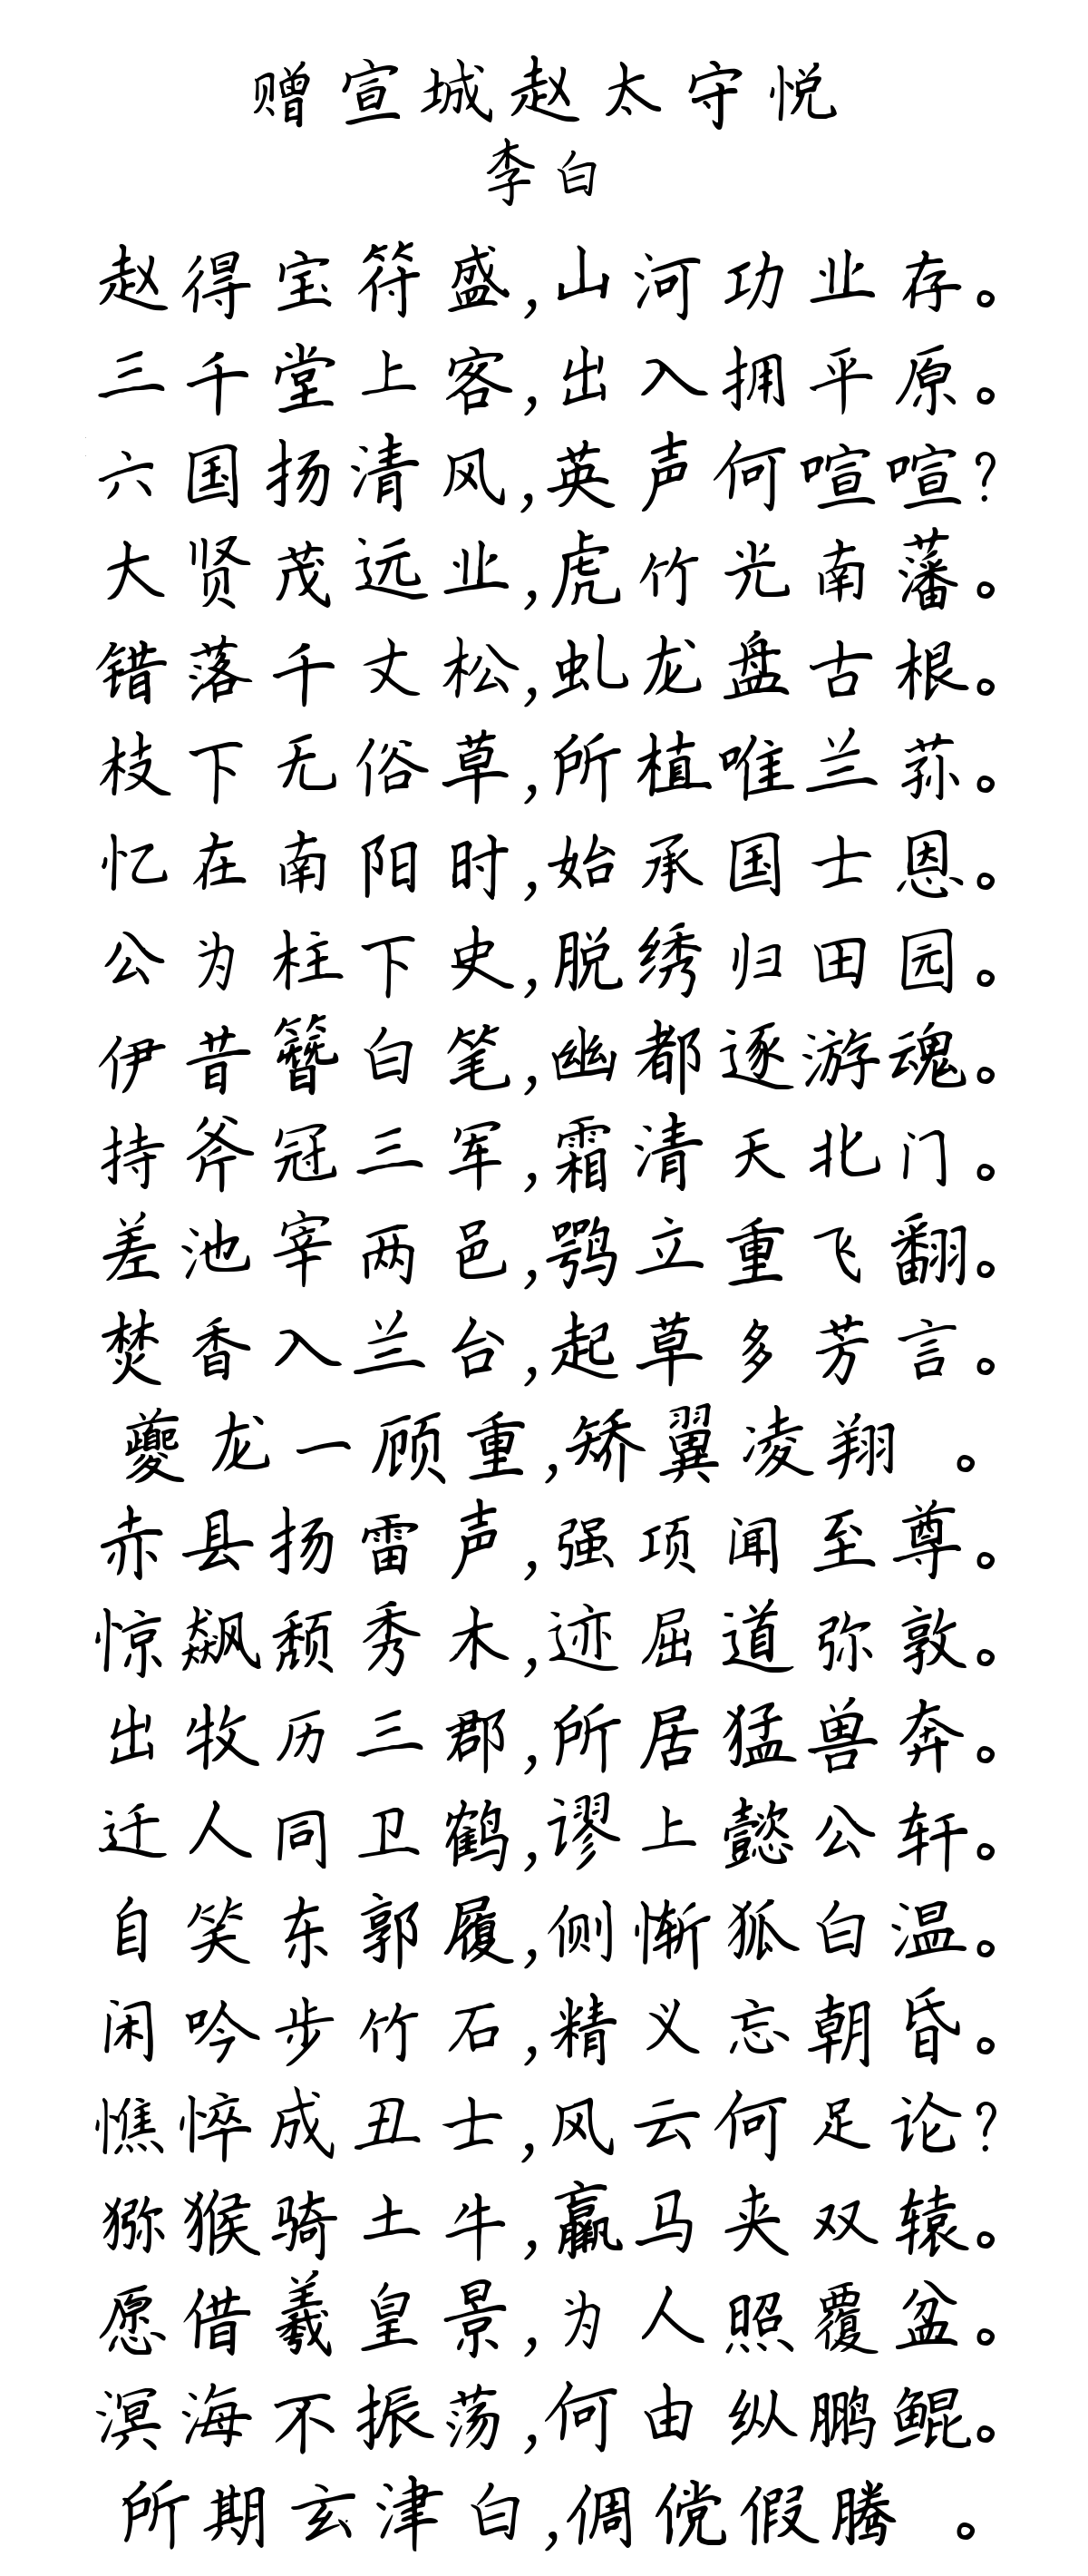 赠宣城赵太守悦
李白
赵得宝符盛,山河功业存。
三千堂上客,出入拥平原。
六国扬清风,英声何喧喧?
大贤茂远业,虎竹光南藩。
错落千丈松,虬龙盘古根。
枝下无俗草,所植唯兰荪。
忆在南阳时,始承国士恩。
公为柱下史,脱绣归田园。
伊昔簪白笔,幽都逐游魂。
持斧冠三军,霜清天北门。
差池宰两邑,鹗立重飞翻。
焚香入兰台,起草多芳言。
夔龙一顾重,矫翼凌翔 。
赤县扬雷声,强项闻至尊。
惊飙颓秀木,迹屈道弥敦。
出牧历三郡,所居猛兽奔。
迁人同卫鹤,谬上懿公轩。
自笑东郭履,侧惭狐白温。
闲吟步竹石,精义忘朝昏。
憔悴成丑士,风云何足论?
猕猴骑土牛,羸马夹双辕。
愿借羲皇景,为人照覆盆。
溟海不振荡,何由纵鹏鲲。
所期玄津白,倜傥假腾 。